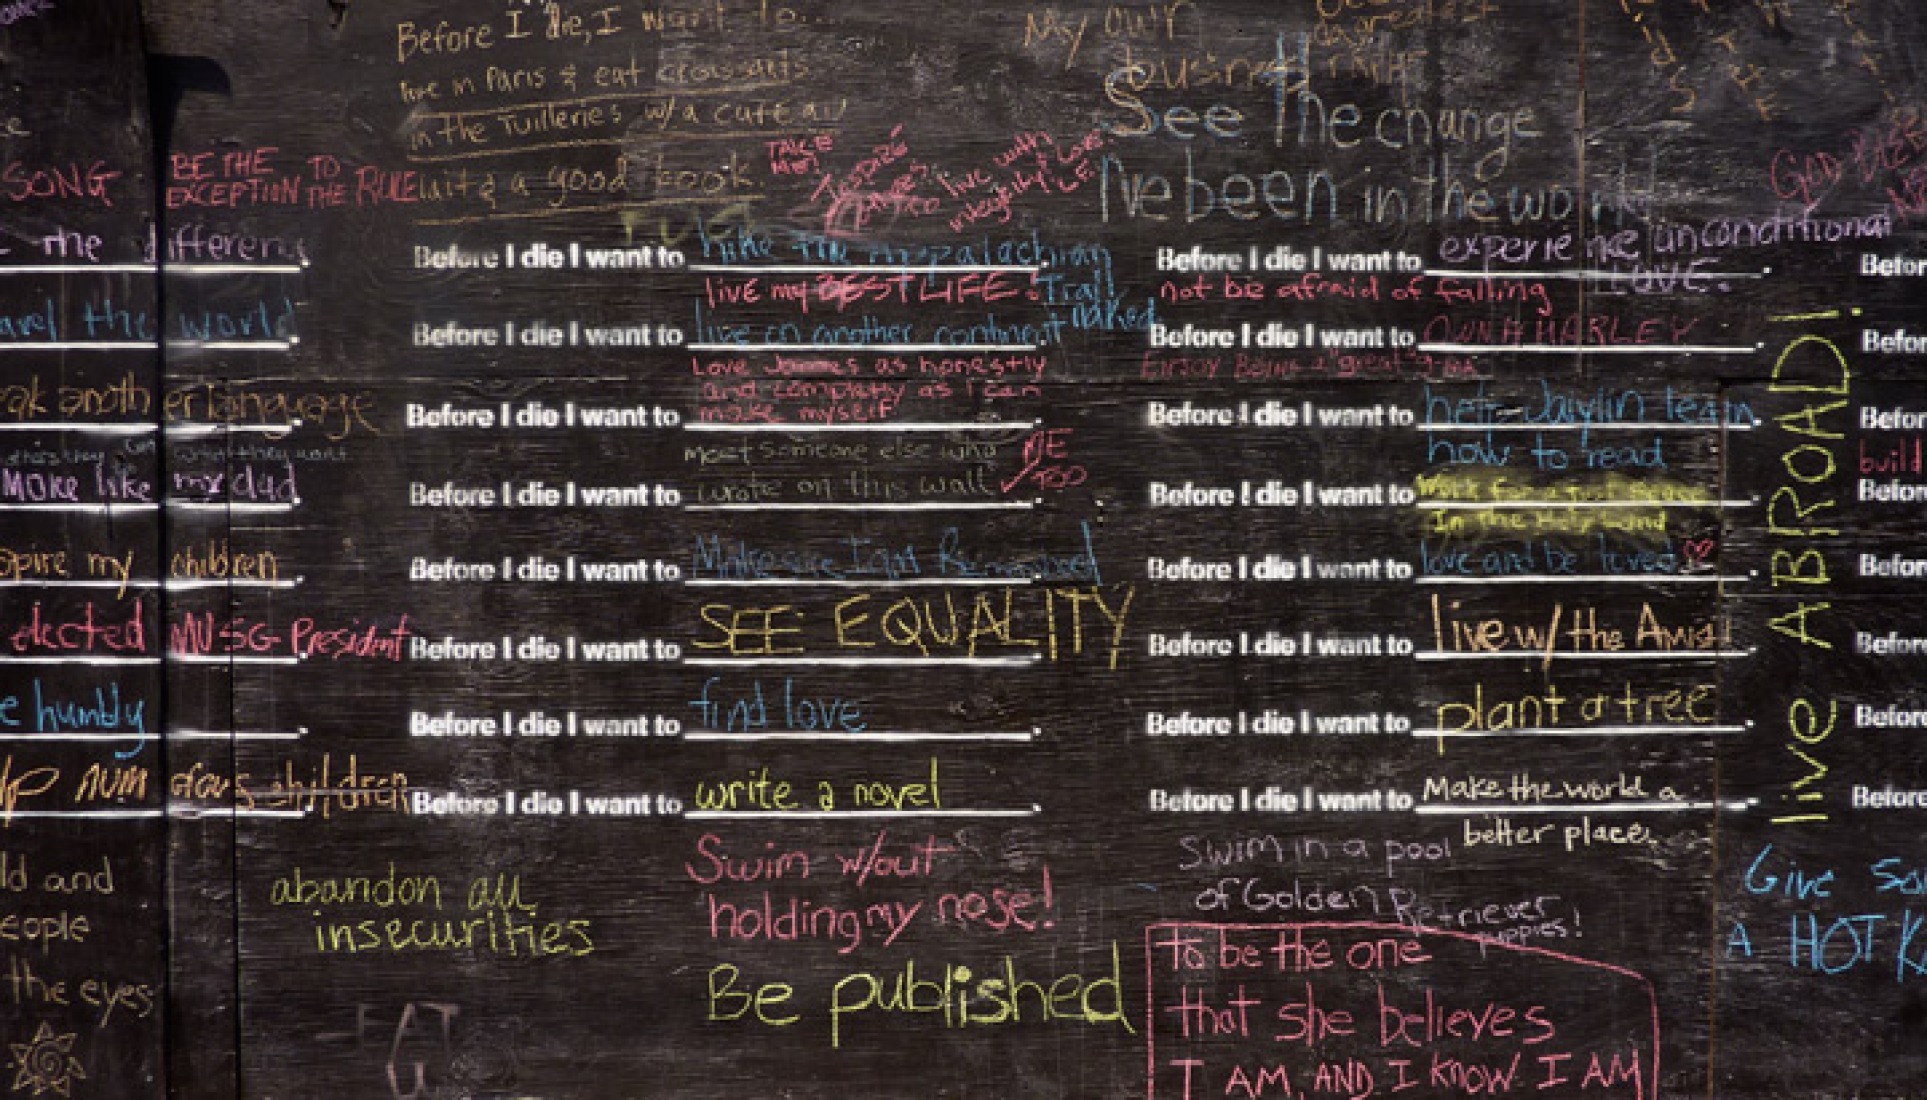 Before I die, I want to...
live in Paris & eat croissants
in the Tuilleries w/a cafe au
lait & a good book.
My own
business
See the change
I've been in the world
SONG
BE THE
EXCEPTION TO
THE RULE
TAKE
ME!
live with
integrity & love
GOD BLESS
the different
Before I die I want to hike the Appalachian
Trail
naked
live my BEST LIFE!
Before I die I want to experience unconditional
LOVE.
not be afraid of falling
avel the world
Before I die I want to live on another continent
Before I die I want to OWN A HARLEY
Enjoy Being a "great"
eak another language
Love James as honestly
and completly as i can
make myself
Before I die I want to
Before I die I want to help Jaiylin learn
how to read
what they want
Make like my dad
meet someone else who
wrote on this wall
ME
TOO
Before I die I want to
Before I die I want to Work for a just Peace
In the Holy Land
build
spire my children
Before I die I want to Make sure I am Remembered
Before I die I want to love and be loved
elected MUSG President
Before I die I want to SEE EQUALITY
Before I die I want to live w/ the Amish
e humbly
Before I die I want to find love
Before I die I want to plant a tree
lp numerous children
Before I die I want to write a novel
Before I die I want to Make the world a
better place.
live ABROAD!
Befor
Befor
Befor
Befor
Befor
Befor
Befor
Before
ld and
eople
the eyes
abandon all
insecurities
Swim w/out
holding my nose!
Be published
Swim in a pool
of Golden Retriever
puppies!
To be the one
that she believes
I AM, AND I KNOW I AM
Give So
A HOT K
EAT